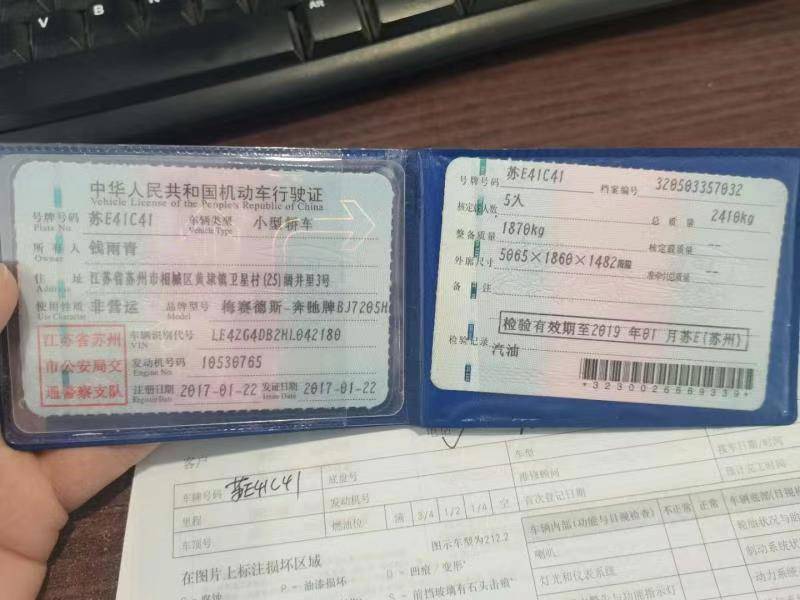 V
B
N
M
Alt
中华人民共和国机动车行驶证
Vehicle License of the People's Republic of China
号牌号码 苏E41C41 车辆类型 小型轿车
Plate No. Vehicle Type
所有人 钱雨青
Owner
住址 江苏省苏州市相城区黄埭镇卫星村(25)
Address
使用性质 非营运 品牌型号 梅赛德斯-奔驰牌BJ7205H
Use Character Model
江苏省苏州
市公安局交
通警察支队
车辆识别代号 LE4ZG4DB2HL042180
VIN
发动机号码 10530765
Engine No.
注册日期 2017-01-22 发证日期 2017-01-22
Register Date Issue Date
号牌号码 苏E41C41 档案编号 320503357032
核定载人数 5人 总质量 2410kg
整备质量 1870kg 核定载质量 --
外廓尺寸 5065×1860×1482 准牵引总质量 --
备注
检验有效期至2019年01月苏E(苏州)
检验记录 汽油
*3230026689339*
客户
车牌号码 苏E41C41 底盘号 车型 接车日期/时间
里程 发动机号 维修顾问 预计完工时间
车顶号 燃油位 满 3/4 1/2 1/4 空 首次登记日期
图示车型为212.2
在图片上标注损坏区域
P = 油漆损坏 凹痕/变形
S = 前挡玻璃有石头击痕
车辆内部(功能与目视检查) 不正常 正常 车辆底部(目视检
喇叭
灯光和仪表系统
轮胎状况与
制动系统状
动力系统